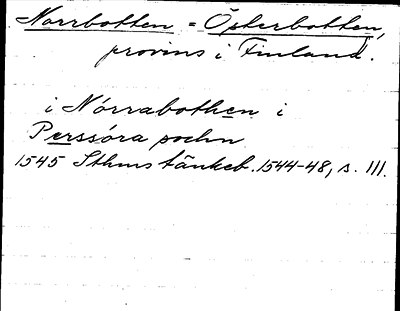 Norrbotten = Österbotten,
provins i Finland.
i Nórrabothen i
Perssóra sochn
1545 Sthms tänkeb. 1544-48, s. 111.